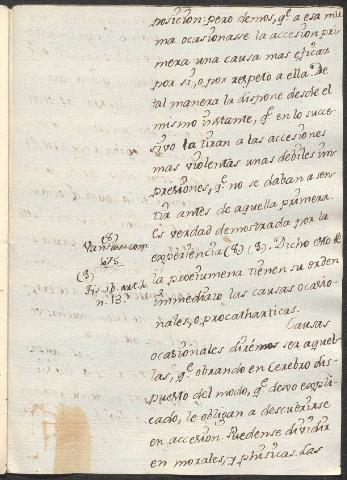 posicion: pero demos, q̃ a esa mis
ma ocasionasse la accesion pri
mera una causa mas eficaz
por si, o por respeto a ella. De
tal manera la dispone desde el
mismo instante, q̃ en lo succe
sivo la tiran a las accesiones
mas violentas unas debiles im
presiones, q̃ no se daban a sen
tir antes de aquella primera.
Es verdad demostrada por la
experiencia (8) (9). Dicho esto de
la proëgumena tienen su orden
immediato las causas ocasio
nales, o procatharticas.
Causas
ocasionales dirémos ser aquel
las, q̃ obrando en Cerebro dis
puesto del modo, q̃ devo expli
cado, le obligan a descubrirse
en accesion. Puedense dividir
en morales, y phisicas. Las
(8)
com.
1075
(9)
n. 13.